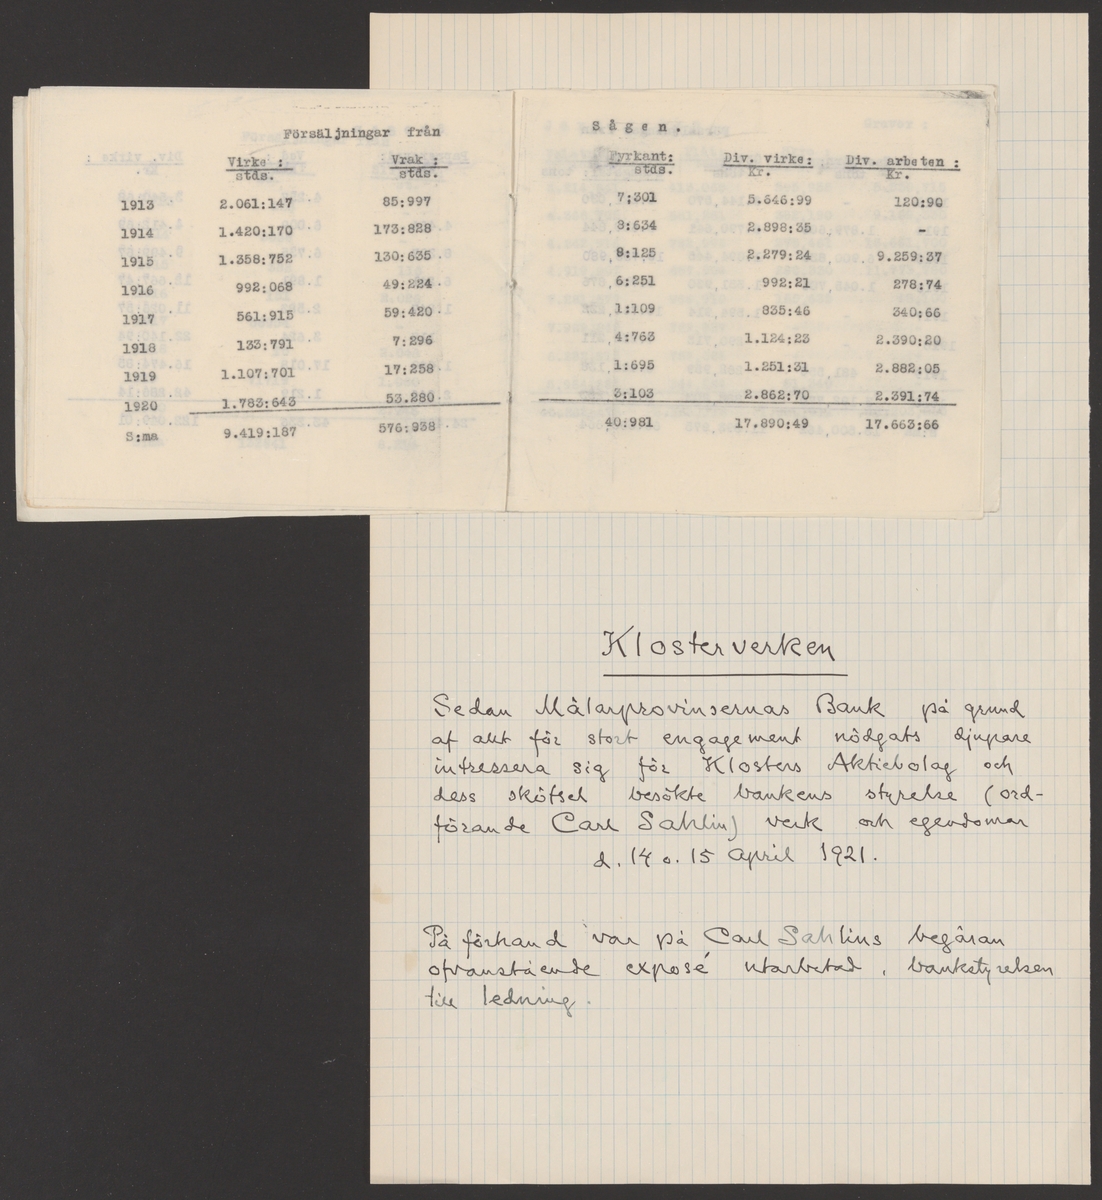 Försäljningar från Sågen.
Virke: Vrak: Fyrkant: Div. virke: Div. arbeten:
stds. stds. stds. Kr. Kr.
1913 2.061:147 85:997 7:301 5.646:99 120:90
1914 1.420:170 173:828 8:634 2.898:35 -
1915 1.358:752 130:635 8:125 2.279:24 9.259:37
1916 992:068 49:224 6:251 992:21 278:74
1917 561:915 59:420 1:109 835:46 340:66
1918 133:791 7:296 4:763 1.124:23 2.390:20
1919 1.107:701 17:258 1:695 1.251:31 2.882:05
1920 1.783:643 53.280 3:103 2.862:70 2.391:74
S:ma 9.419:187 576:938 40:981 17.890:49 17.663:66
Klosterverken
Sedan Mälarprovinsernas Bank på grund
af allt för stort engagement nödgats djupare
intressera sig för Klosters Aktiebolag och
dess skötsel besökte bankens styrelse (ord-
förande Carl Sahlin) verk och egendomar
d. 14 o. 15 April 1921.
På förhand var på Carl Sahlins begäran
ofvanstående exposé utarbetad, bankstyrelsen
till ledning.